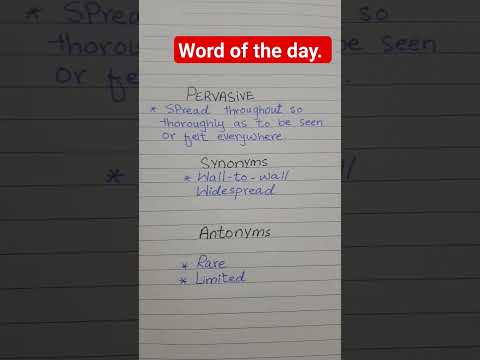 Word of the day.
PERVASIVE
* SPread throughout so
thoroughly as to be seen
or felt everywhere.
Synonyms
* Wall-to-wall/
Widespread
Antonyms
* Rare
* Limited